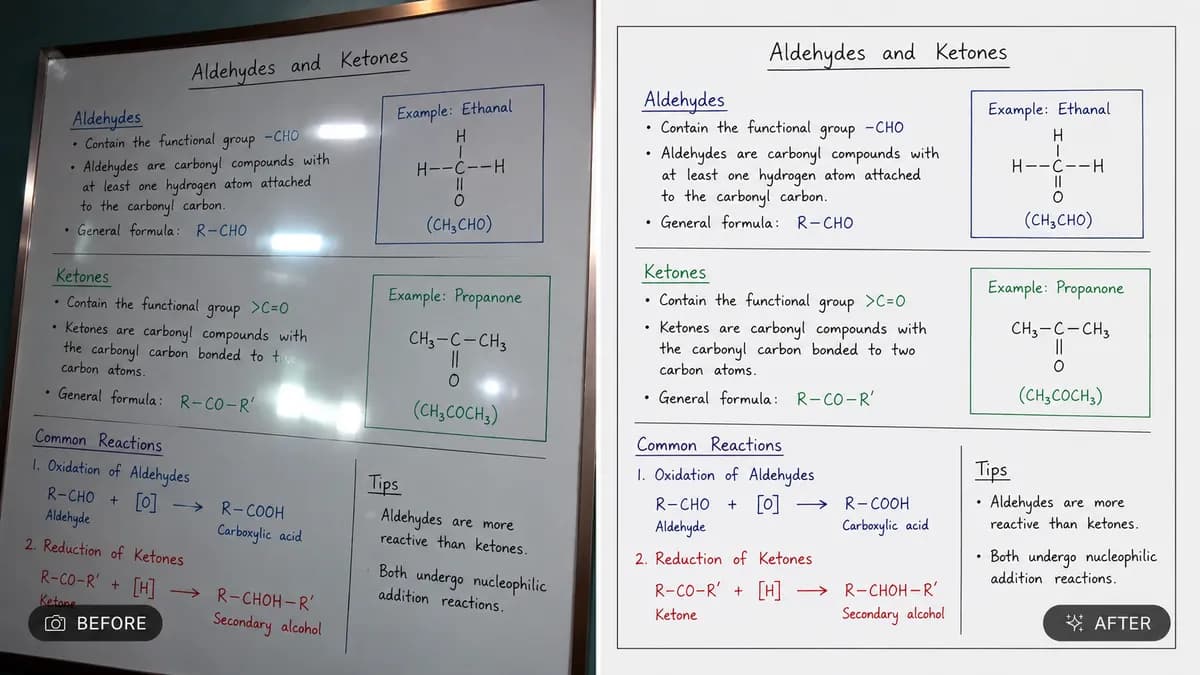 Aldehydes and Ketones
Aldehydes
• Contain the functional group -CHO
• Aldehydes are carbonyl compounds with
at least one hydrogen atom attached
to the carbonyl carbon.
• General formula: R-CHO
Example: Ethanal
H
|
H--C--H
||
O
(CH₃CHO)
Ketones
• Contain the functional group >C=O
• Ketones are carbonyl compounds with
the carbonyl carbon bonded to
carbon atoms.
• General formula: R-CO-R'
Example: Propanone
CH₃-C-CH₃
||
O
(CH₃COCH₃)
Common Reactions
1. Oxidation of Aldehydes
R-CHO + [O] → R-COOH
Aldehyde Carboxylic acid
2. Reduction of Ketones
R-CO-R' + [H] → R-CHOH-R'
Ketone Secondary alcohol
Tips
Aldehydes are more
reactive than ketones.
Both undergo nucleophilic
addition reactions.
BEFORE
Aldehydes and Ketones
Aldehydes
• Contain the functional group -CHO
• Aldehydes are carbonyl compounds with
at least one hydrogen atom attached
to the carbonyl carbon.
• General formula: R-CHO
Example: Ethanal
H
|
H--C--H
||
O
(CH₃CHO)
Ketones
• Contain the functional group >C=O
• Ketones are carbonyl compounds with
the carbonyl carbon bonded to two
carbon atoms.
• General formula: R-CO-R'
Example: Propanone
CH₃-C-CH₃
||
O
(CH₃COCH₃)
Common Reactions
1. Oxidation of Aldehydes
R-CHO + [O] → R-COOH
Aldehyde Carboxylic acid
2. Reduction of Ketones
R-CO-R' + [H] → R-CHOH-R'
Ketone Secondary alcohol
Tips
• Aldehydes are more
reactive than ketones.
• Both undergo nucleophilic
addition reactions.
AFTER